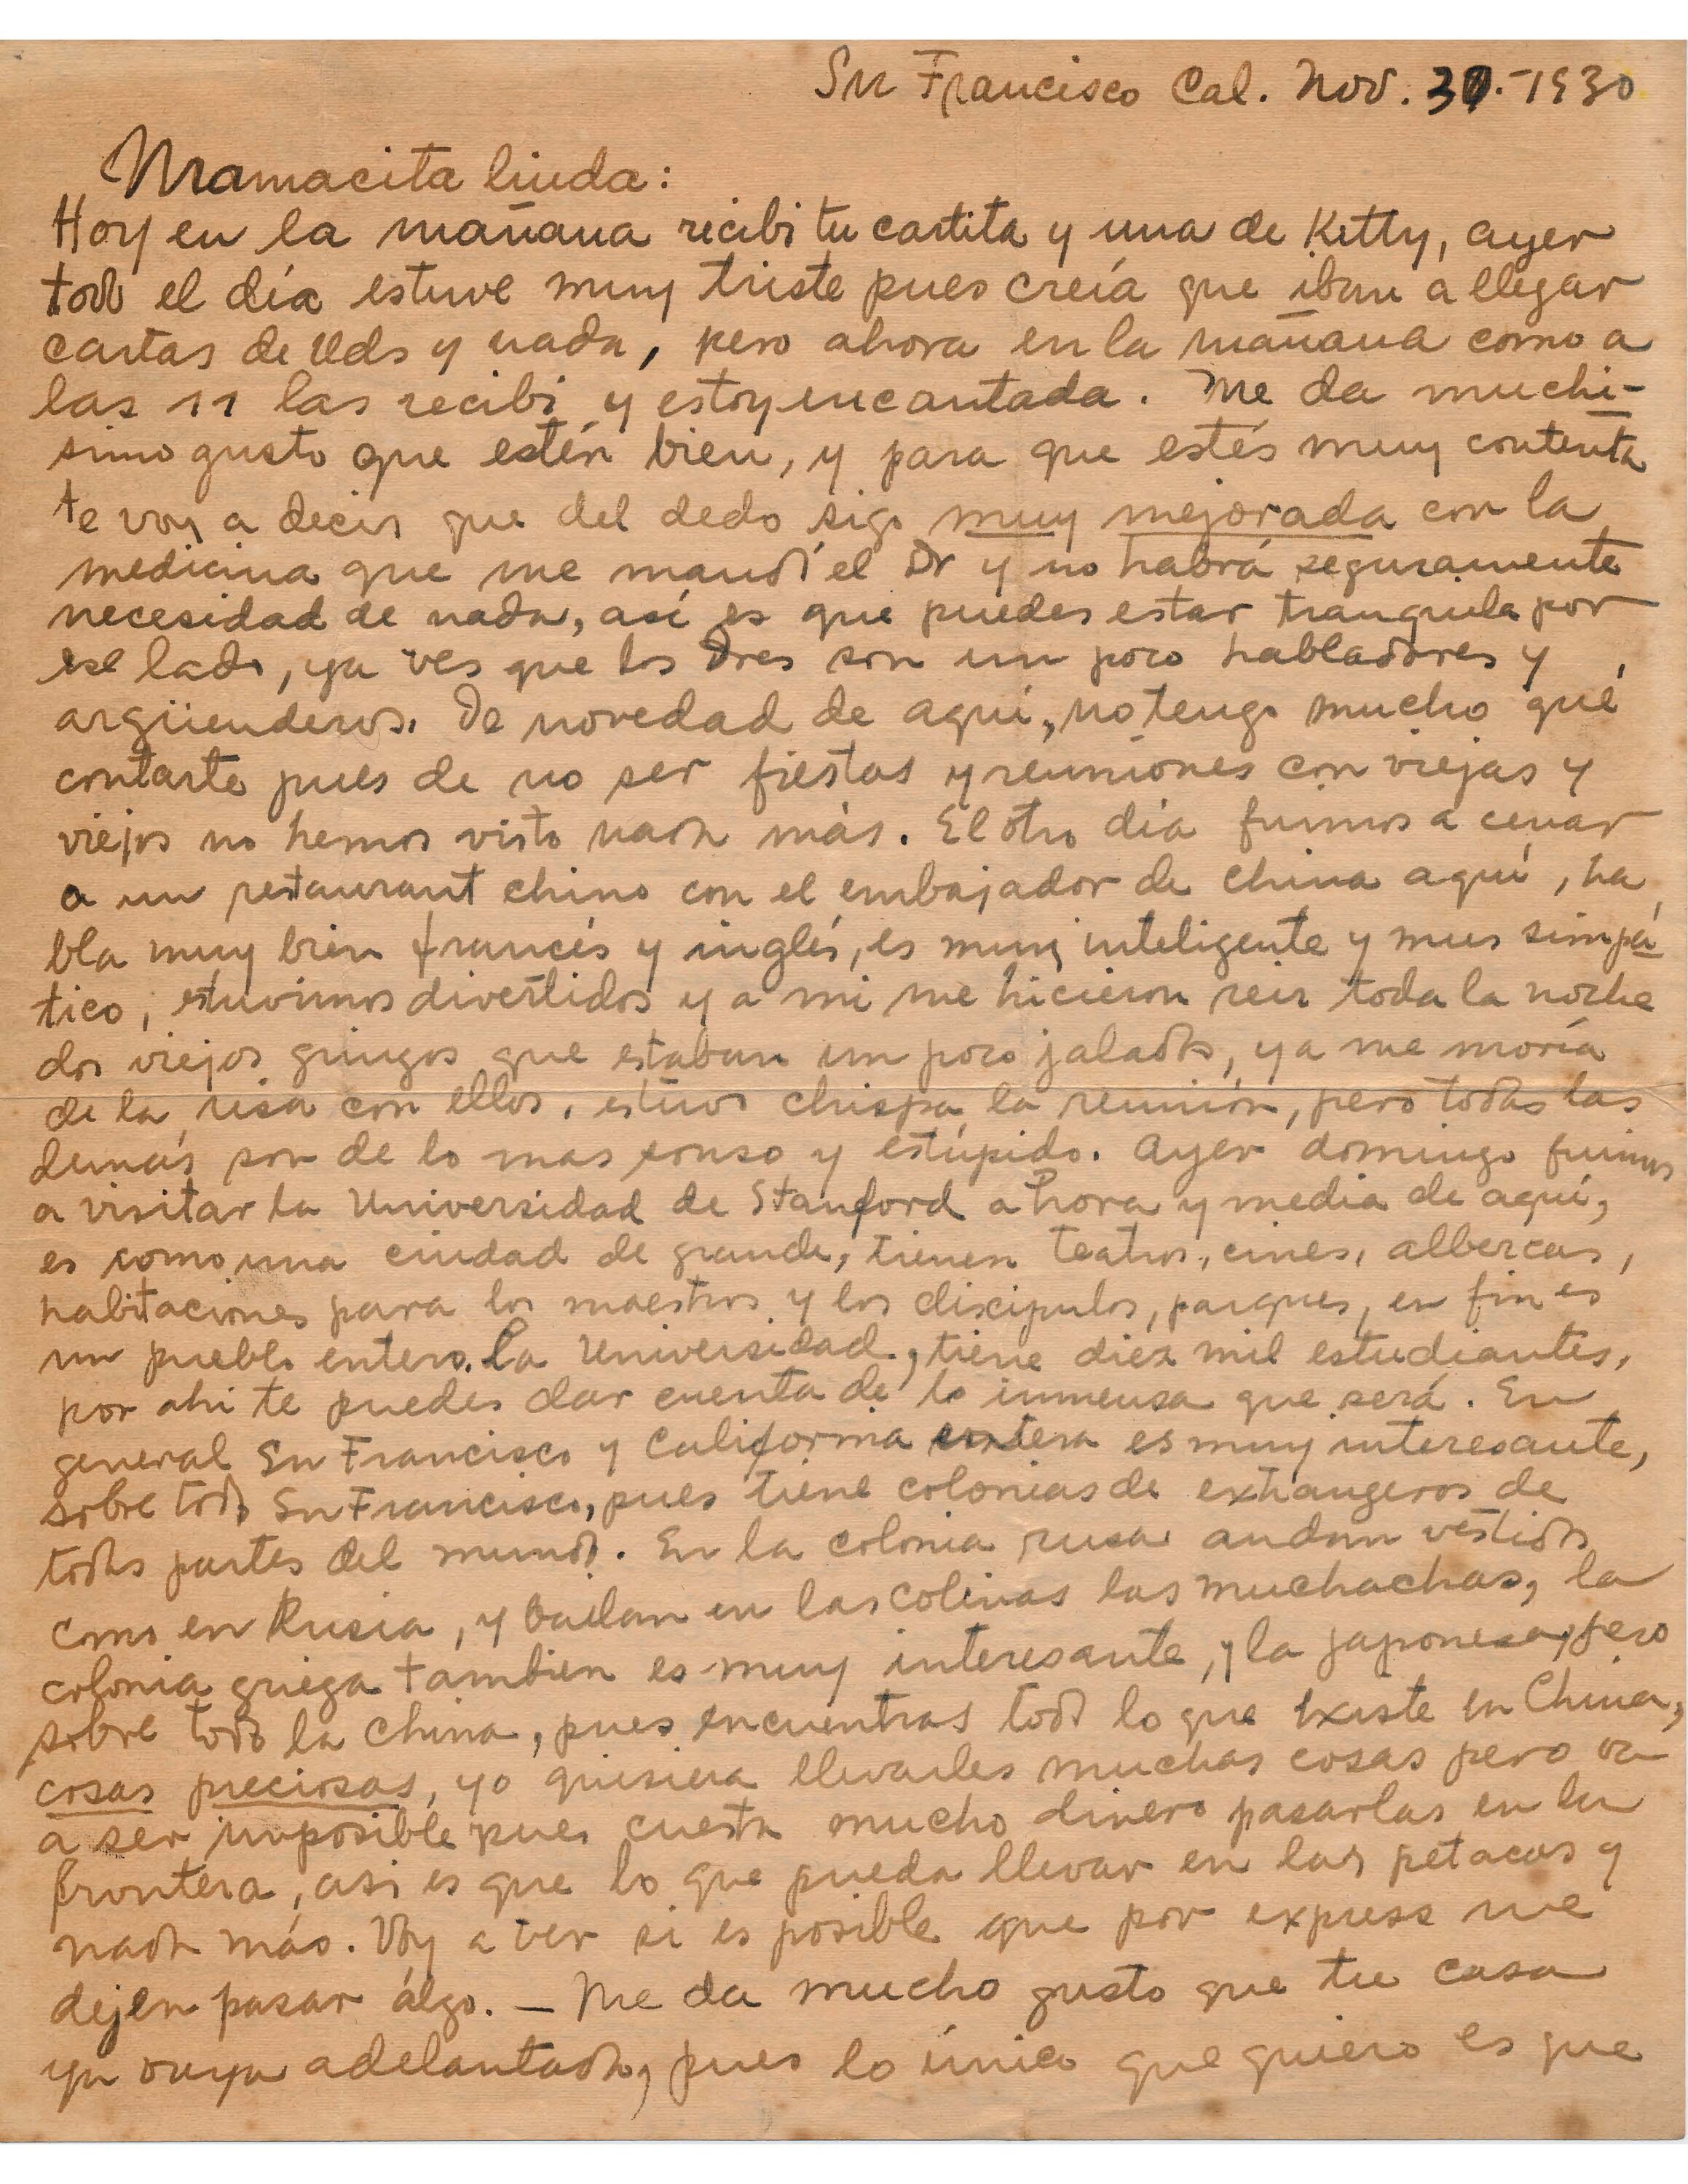 Sn Francisco Cal. Nov. 30.-1930
Mamacita linda:
Hoy en la mañana recibi tu cartita y una de Kitty, ayer
todo el día estuve muy triste pues creía que iban a llegar
cartas de Uds y nada, pero ahora en la mañana como a
las 11 las recibi y estoy encantada. Me da muchi-
simo gusto que estén bien, y para que estés muy contenta
te voy a decir que del dedo sigo muy mejorada con la
medicina que me mandó el Dr y no habrá seguramente
necesidad de nada, así es que puedes estar tranquila por
ese lado, ya ves que los Dres son un poco habladores y
argüenderos. De novedad de aquí, no tengo mucho qué
contarte pues de no ser fiestas y reuniones con viejas y
viejos no hemos visto nada más. El otro día fuimos a cenar
a un restaurant chino con el embajador de China aquí, ha
bla muy bien francés y inglés, es muy inteligente y muy simpá
tico, estuvimos divertidos y a mi me hicieron reir toda la noche
dos viejos gringos que estaban un poco jalados, ya me moría
de la risa con ellos, estuvo chispa la reunión, pero todas las
demás son de lo mas sonso y estúpido. Ayer domingo fuimos
a visitar la Universidad de Stanford a hora y media de aquí,
es como una ciudad de grande, tienen teatros, cines, albercas,
habitaciones para los maestros y los discipulos, parques, en fin es
un pueblo entero. La Universidad, tiene diez mil estudiantes,
por ahi te puedes dar cuenta de lo inmensa que será. En
general Sn Francisco y California entera es muy interesante,
sobre todo Sn Francisco, pues tiene colonias de extrangeros de
todas partes del mundo. En la colonia rusa andan vestidos
como en Rusia, y bailan en las colinas las muchachas, la
colonia griega tambien es muy interesante, y la japonesa, pero
sobre todo la china, pues encuentras todo lo que existe en China,
cosas preciosas, yo quisiera llevarles muchas cosas pero va
a ser imposible pues cuesta mucho dinero pasarlas en la
frontera, asi es que lo que pueda llevar en las petacas y
nada más. Voy a ver si es posible que por express me
dejen pasar álgo. — Me da mucho gusto que tu casa
ya vaya adelantada, pues lo único que quiero es que